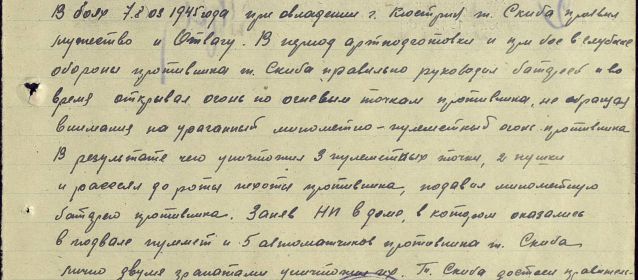 В боях 7.8 03 1945 года при овладении г. Кюстрин т. Скиба проявил
мужество и Отвагу. В период артподготовки и при бое в глубине
обороны противника т. Скиба правильно руководил батареей и во
время открывал огонь по огневым точкам противника, не обращая
внимания на ураганный минометно-пулеметный огонь противника
В результате чего уничтожил 3 пулеметных точки, 2 пушки
и рассеял до роты пехоты противника, подавил минометную
батарею противника. Заняв НП в доме, в котором оказались
в подвале пулемет и 5 автоматчиков противника т. Скиба
лично двумя гранатами уничтожил их. Т. Скиба достоин правител